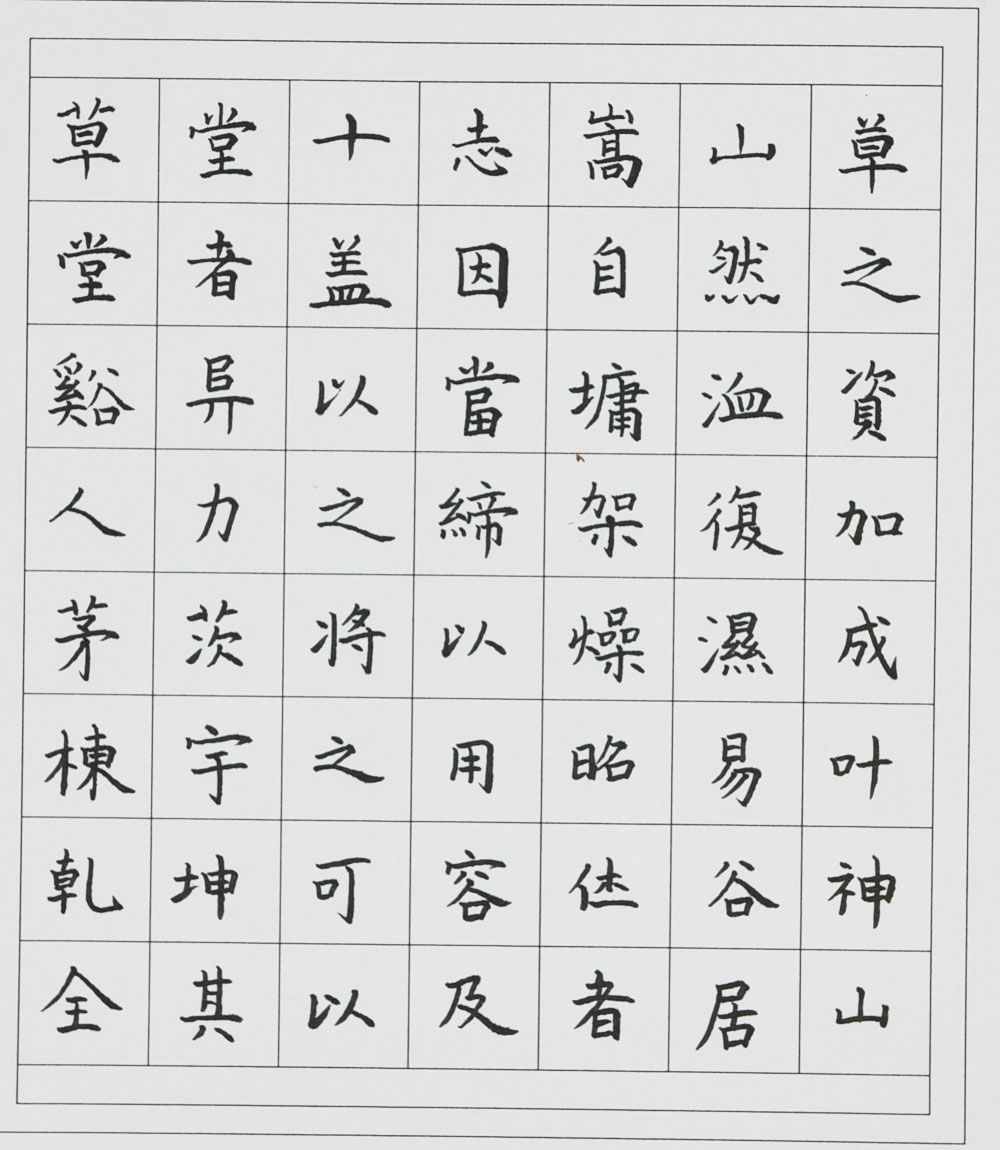 草堂十志嵩山草
堂者盖因自然之
谿阜以當墉洫資
人力之締架復加
茅茨将以燥濕成
棟宇之用昭易叶
乾坤可容休谷神
全其以及者居山